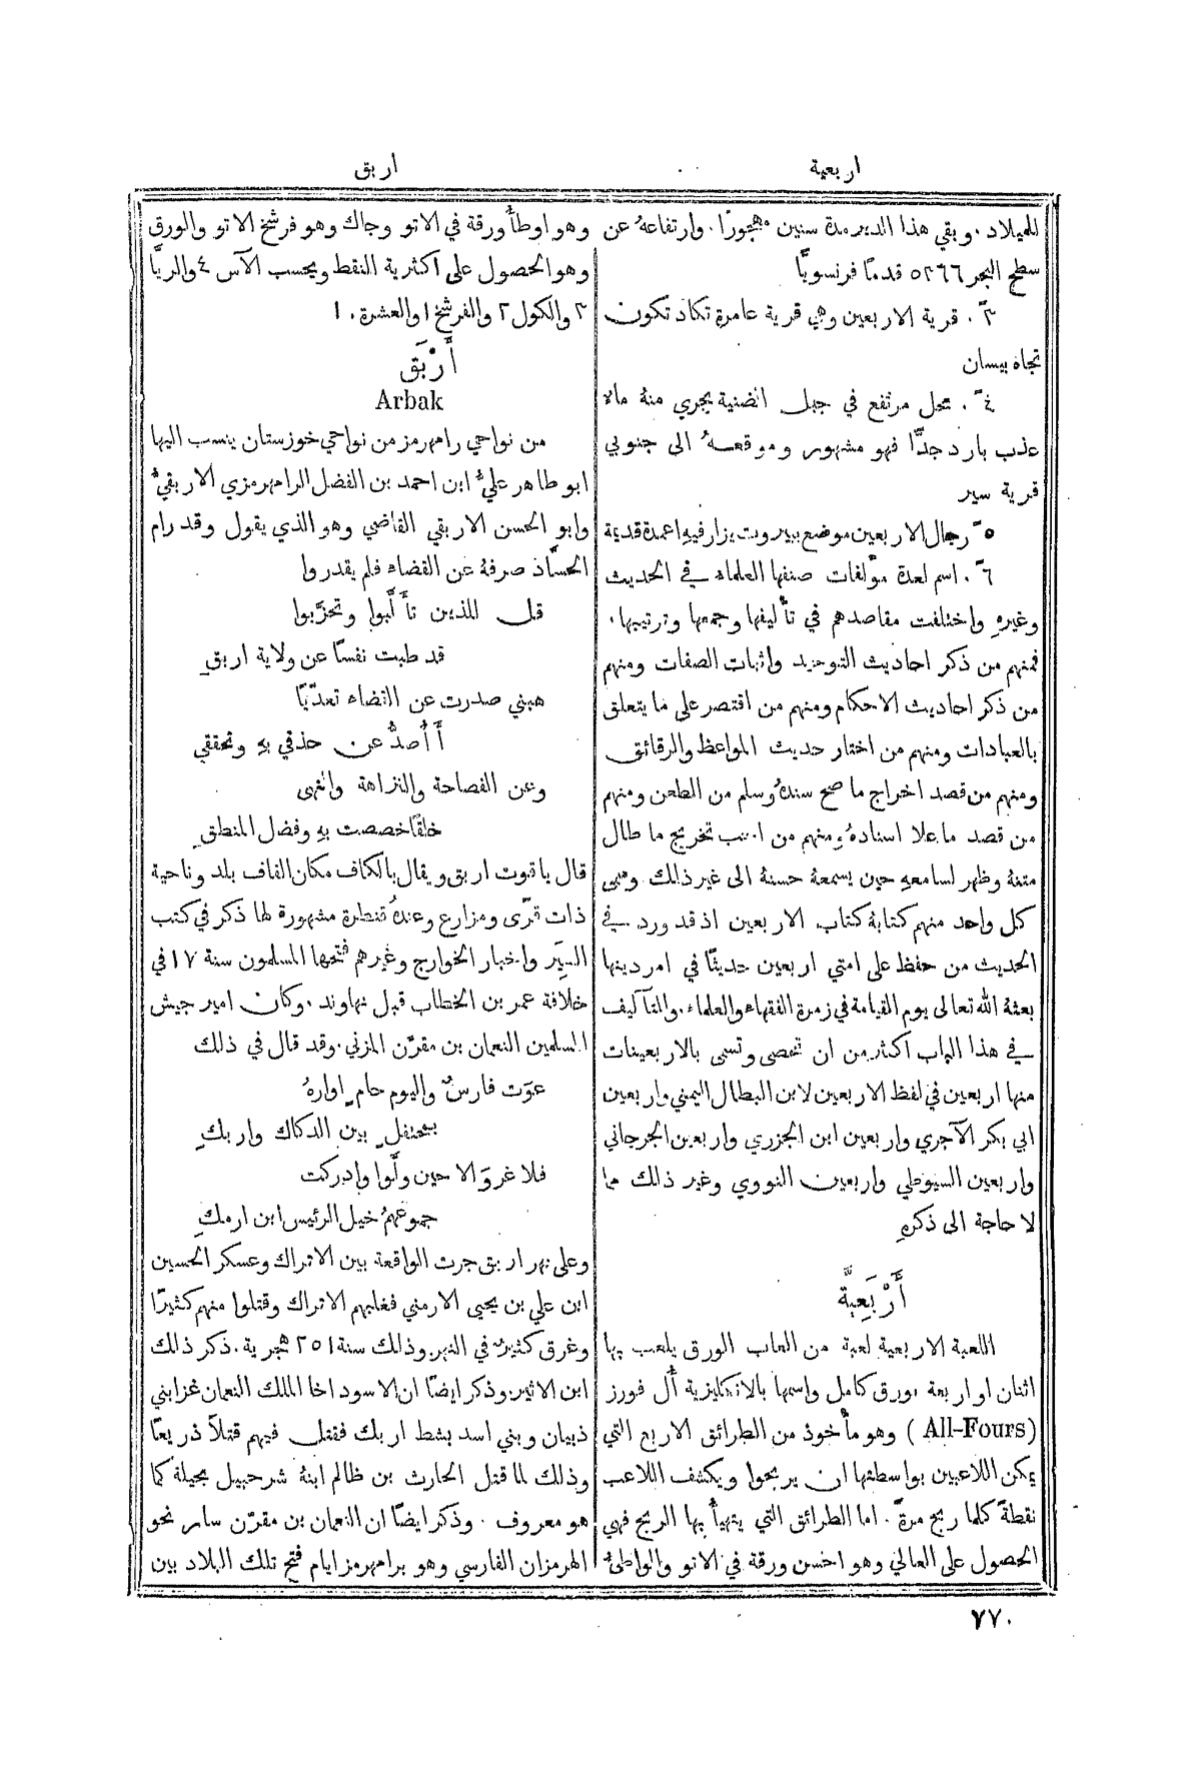 اربعية
اربق
للميلاد . وبقي هذا الدير مدة سنين مهجورًا . وارتفاعهُ عن
سطح البحر ٥٢٦٦ قدمًا فرنسويًّا
٣ . قرية الاربعين وهي قرية عامرة تكاد تكون
تجاه بيسان
٤ . محل مرتفع في جبل الضنية يجري منهُ مالا
عذب بارد جدًّا فهو مشهور وموقعهُ الى جنوبي
قرية سير
٥ رجال الاربعين موضع ببيروت يزار فيهِ اعمدة قديمة
٦ . اسم لعدة مؤلفات صنفها العلماء في الحديث
وغيرهِ واختلفت مقاصدهم في تأليفها وجمعها وترتيبها .
فمنهم من ذكر احاديث التوحيد واثبات الصفات ومنهم
من ذكر احاديث الاحكام ومنهم من اقتصر على ما يتعلق
بالعبادات ومنهم من اختار حديث المواعظ والرقائق
ومنهم من قصد اخراج ما صح سندهُ وسلم من الطعن ومنهم
من قصد ما علا اسنادهُ ومنهم من احب تخريج ما طال
متنهُ وظهر لسامعهِ حين يسمعهُ حسنهُ الى غير ذلك . وسمى
كل واحد منهم كتابهُ كتاب الاربعين اذ قد ورد في
الحديث من حفظ على امتي اربعين حديثًا في امر دينها
بعثهُ الله تعالى يوم القيامة في زمرة الفقهاء والعلماء . والتآليف
في هذا الباب اكثر من ان تحصى وتسمى بالاربعينات
منها اربعين في لفظ الاربعين لابن البطال اليمني واربعين
ابي بكر الآجري واربعين ابن الجزري واربعين الجرجاني
واربعين السيوطي واربعين النووي وغير ذلك مما
لا حاجة الى ذكرهِ
أَرْبَعِيَّة
اللعبة الاربعية لعبة من العاب الورق يلعب بها
اثنان او اربعة بورق كامل واسمها بالانكليزية أُل فورز
(All-Fours) وهو مأخوذ من الطرائق الاربع التي
يمكن اللاعبين بواسطتها ان يربحوا ويكشف اللاعب
نقطة كلما ربح مرة . اما الطرائق التي يتهيأ بها الربح فهي
الحصول على العالي وهو احسن ورقة في الاتو والواطئ
وهو اوطأ ورقة في الاتو وجاك وهو فرشخ الاتو والورق
وهو الحصول على اكثرية النقط ويحسب الآس ٤ والريا
٣ والكول ٢ والفرشخ ١ والعشرة ١٠
أَرْبَق
Arbak
من نواحي رامهرمز من نواحي خوزستان ينسب اليها
ابو طاهر عليُّ ابن احمد بن الفضل الرامهرمزي الاربقيُّ
وابو الحسن الاربقي القاضي وهو الذي يقول وقد رام
الحسَّاد صرفهُ عن القضاء فلم يقدروا
قل للذين تأَلَّبوا وتحزَّبوا
قد طبت نفسًا عن ولاية اربقِ
هبني صدرت عن القضاء تعدّيًا
أَأُصدُّ عن حذقي بهِ وتحققي
وعن الفصاحة والنزاهة والنهى
خلقًا خصصت بهِ وفضل المنطقِ
قال ياقوت اربق ويقال بالكاف مكان القاف بلد وناحية
ذات قرًى ومزارع وعندهُ قنطرة مشهورة لها ذكر في كتب
السِيَر واخبار الخوارج وغيرهم فتحها المسلمون سنة ١٧ في
خلافة عمر بن الخطاب قبل نهاوند . وكان امير جيش
المسلمين النعمان بن مقرّن المزني . وقد قال في ذلك
عوَت فارسٌ واليوم حامٍ اوارهُ
بمحتفلٍ بين الدكاك واربكِ
فلا غروَ الا حين ولَّوا وادركت
جموعهمُ خيل الرئيس ابن ارمكِ
وعلى نهر اربق جرت الواقعة بين الاتراك وعسكر الحسين
ابن علي بن يحيى الارمني فغلبهم الاتراك وقتلوا منهم كثيرًا
وغرق كثيرٌ في النهر وذلك سنة ٢٥١ هجرية . ذكر ذلك
ابن الاثير . وذكر ايضًا ان الاسود اخا الملك النعمان غزا بني
ذبيان وبني اسد بشط اربك فقتل فيهم قتلًا ذريعًا
وذلك لما قتل الحارث بن ظالم ابنهُ شرحبيل بحيلة كما
هو معروف . وذكر ايضًا ان النعمان بن مقرّن سار نحو
الهرمزان الفارسي وهو برامهرمز ايام فتح تلك البلاد بين
٧٧٠